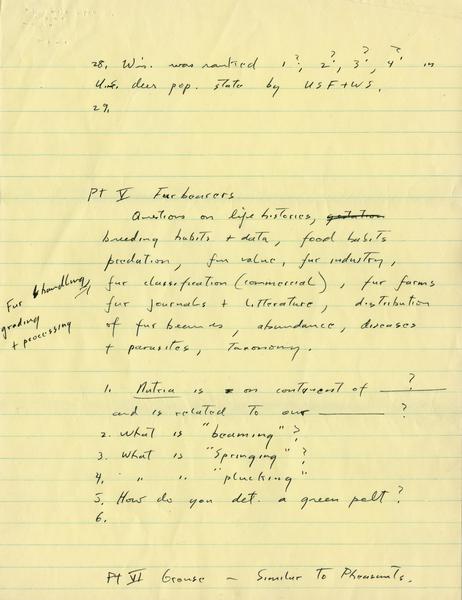 28. Wis. was ranked 1?, 2?, 3?, 4? in
U.S. deer pop. state by USF+WS.
29.
Pt V Furbearers
Questions on life histories, gestation
breeding habits + data, food habits
predation, fur value, fur industry,
fur classification (commercial), fur farms
fur journals + litterature, distribution
of fur bearers, abundance, diseases
+ parasites, taxonomy.
Fur handling,
grading
+ processing
1. Nutria is on continent of ____?
and is related to our ____?
2. What is "beaming"?
3. What is "Springing"?
4. " " "plucking"
5. How do you det. a green pelt?
6.
Pt VI Grouse — Similar to Pheasants.